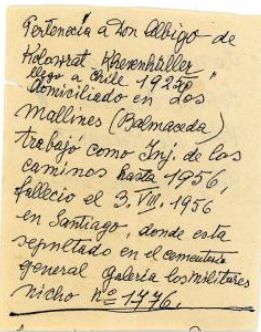 Pertenecía a Don Albigo de
Kolowrat Khevenhüller
llego a Chile 1925
Domiciliado en Los
Mallines (Balmaceda)
trabajó como Inj. de los
caminos hasta 1956,
fallecio el 3. VIII. 1956
en Santiago, donde esta
sepultado en el cementerio
general Galería los militares
nicho nº 1776.